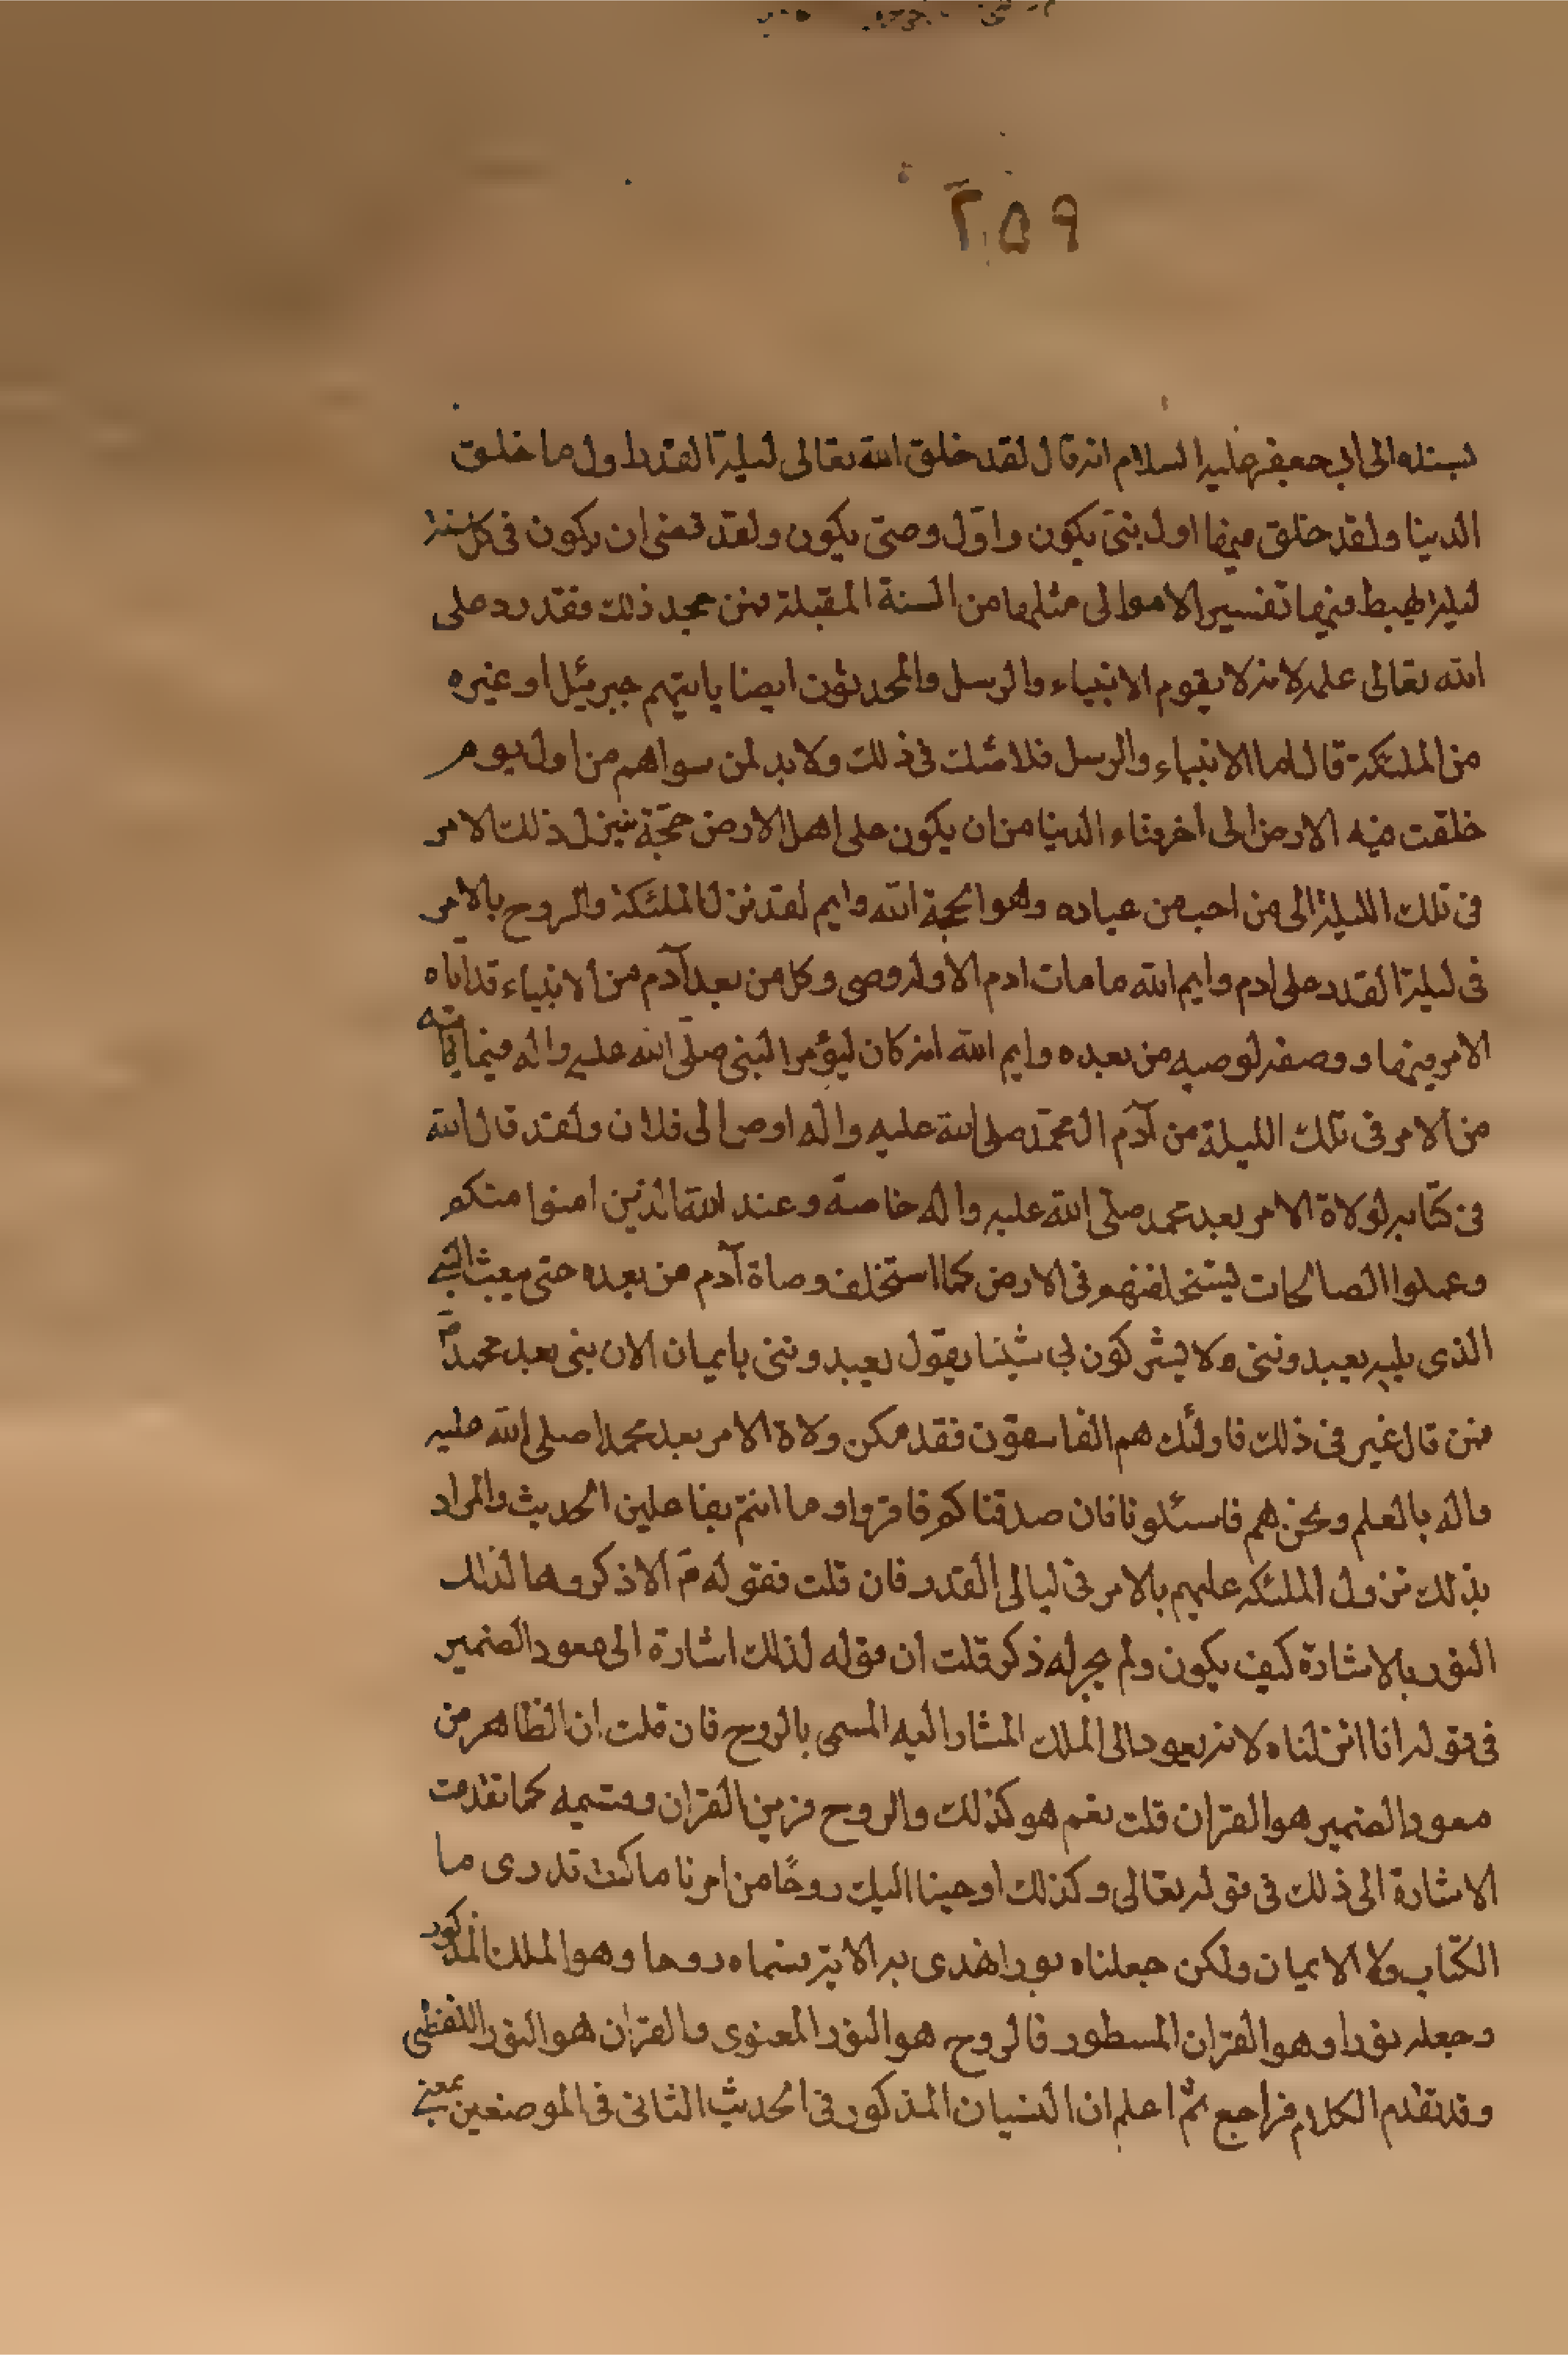 ٢٥٩
بسنده الى ابي جعفر عليه السلام انه قال لقد خلق الله تعالى ليلة القدر اول ما خلق
الدنيا ولقد خلق فيها اول نبيّ يكون واوّل وصيّ يكون ولقد قضى ان يكون فى كل سنة
ليلة يهبط فيها تفسير الامور الى مثلها من السنة المقبلة فمن جحد ذلك فقد رد على
الله تعالى علمه لانه لا يقوم الانبياء والرسل والمحدثون ايضا ياتيهم جبرئيل او غيره
من الملئكة قال اما الانبياء والرسل فلا شك فى ذلك ولا بد لمن سواهم من اول يوم
خلقت فيه الارض الى اخر فناء الدنيا من ان يكون على اهل الارض حجّة ينزل ذلك الامر
فى تلك الليلة الى من احب من عباده وهو الحجة الله وايم لقد نزل الملئكة والروح بالامر
فى ليلة القدر على ادم وايم الله ما مات ادم الا وله وصى وكل من بعد آدم من الانبياء قد اتاه
الامر فيها ووصفه لوصيه من بعده وايم الله انه كان ليؤمر النبى صلّى الله عليه واله فيما ياتيه
من الامر فى تلك الليلة من آدم الى محمّد صلى الله عليه واله اوص الى فلان ولقد قال الله
فى كتابه لولاة الامر بعد محمد صلى الله عليه واله خاصة وعند الله الذين امنوا منكم
وعملوا الصالحات ليستخلفنهم فى الارض كما استخلف وصاة آدم من بعده حتى يبعث النبى
الذى يليه يعبدوننى ولا يشركون بى شيئا يقول يعبدوننى بايمان الان نبى بعد محمد ص
فمن قال غير فى ذلك فاولئك هم الفاسقون فقد مكن ولاة الامر بعد محمدا صلى الله عليه
واله بالعلم ونحن هم فاسئلونا فان صدقناكم فاقروا وما انتم بفاعلين الحديث والمراد
بذلك نزول الملئكه عليهم بالامر فى ليالى القدر فان قلت فقوله الا ذكروها لذلك
النور بالاشارة كيف يكون ولم يجر له ذكر قلت ان قوله لذلك اشارة الى معود الضمير
فى قوله انا انزلناه لانه يعود الى الملك المشار اليه المسمى بالروح فان قلت ان الظاهر من
معود الضمير هو القران قلت نعم هو كذلك والروح قرين القران وقسيمه كما تقدمت
الاشارة الى ذلك فى قوله تعالى وكذلك اوحينا اليك روحًا من امرنا ما كنت تدرى ما
الكتاب ولا الايمان ولكن جعلناه نورا نهدى به الاية فسماه روحا وهو الملك المذكور
وجعله نورا وهو القران المسطور فالروح هو النور المعنوى والقران هو النور اللفظى
وقد تقدم الكلام فراجع ثمّ اعلم ان النسيان المذكور فى الحديث الثانى فى الموضعين بمعنى